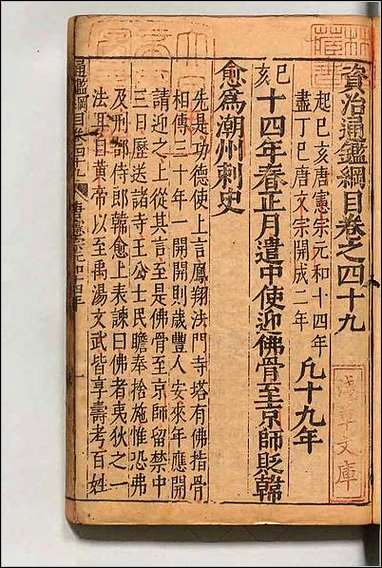 資治通鑑綱目卷之四十九
起己亥唐憲宗元和十四年
盡丁巳唐文宗開成二年
凡十九年
己亥
十四年春正月遣中使迎佛骨至京師貶韓
愈為潮州刺史
先是功德使上言鳳翔法門寺塔有佛指骨
相傳三十年一開開則歲豐人安來年應開
請迎之上從其言至是佛骨至京師留禁中
三日歷送諸寺王公士民瞻奉捨施惟恐弗
及刑部侍郎韓愈上表諫曰佛者夷狄之一
法耳自黃帝以至禹湯文武皆享壽考百姓
淺草文庫